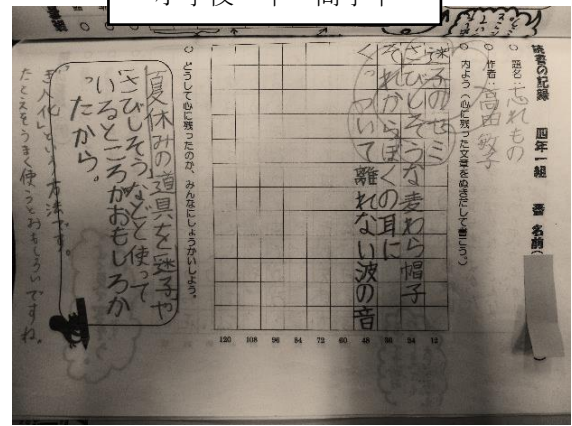 読書の記録 四年一組 番 名前(
○ 題名:忘れもの
○ 作者:高田敏子
○ 内よう(心に残った文章をぬきだして書こう)
迷子のセミ
さびしそうな麦わら帽子
それからぼくの耳に
くっついて離れない波の音
12 24 36 48 60 72 84 96 108 120
○ どうして心に残ったのか、みんなにしょうかいしよう。
夏休みの道具を迷子や
さびしそうなどと使って
いるところがおもしろか
ったから。
という方法です。
たとえをうまく使うとおもしろいですね。